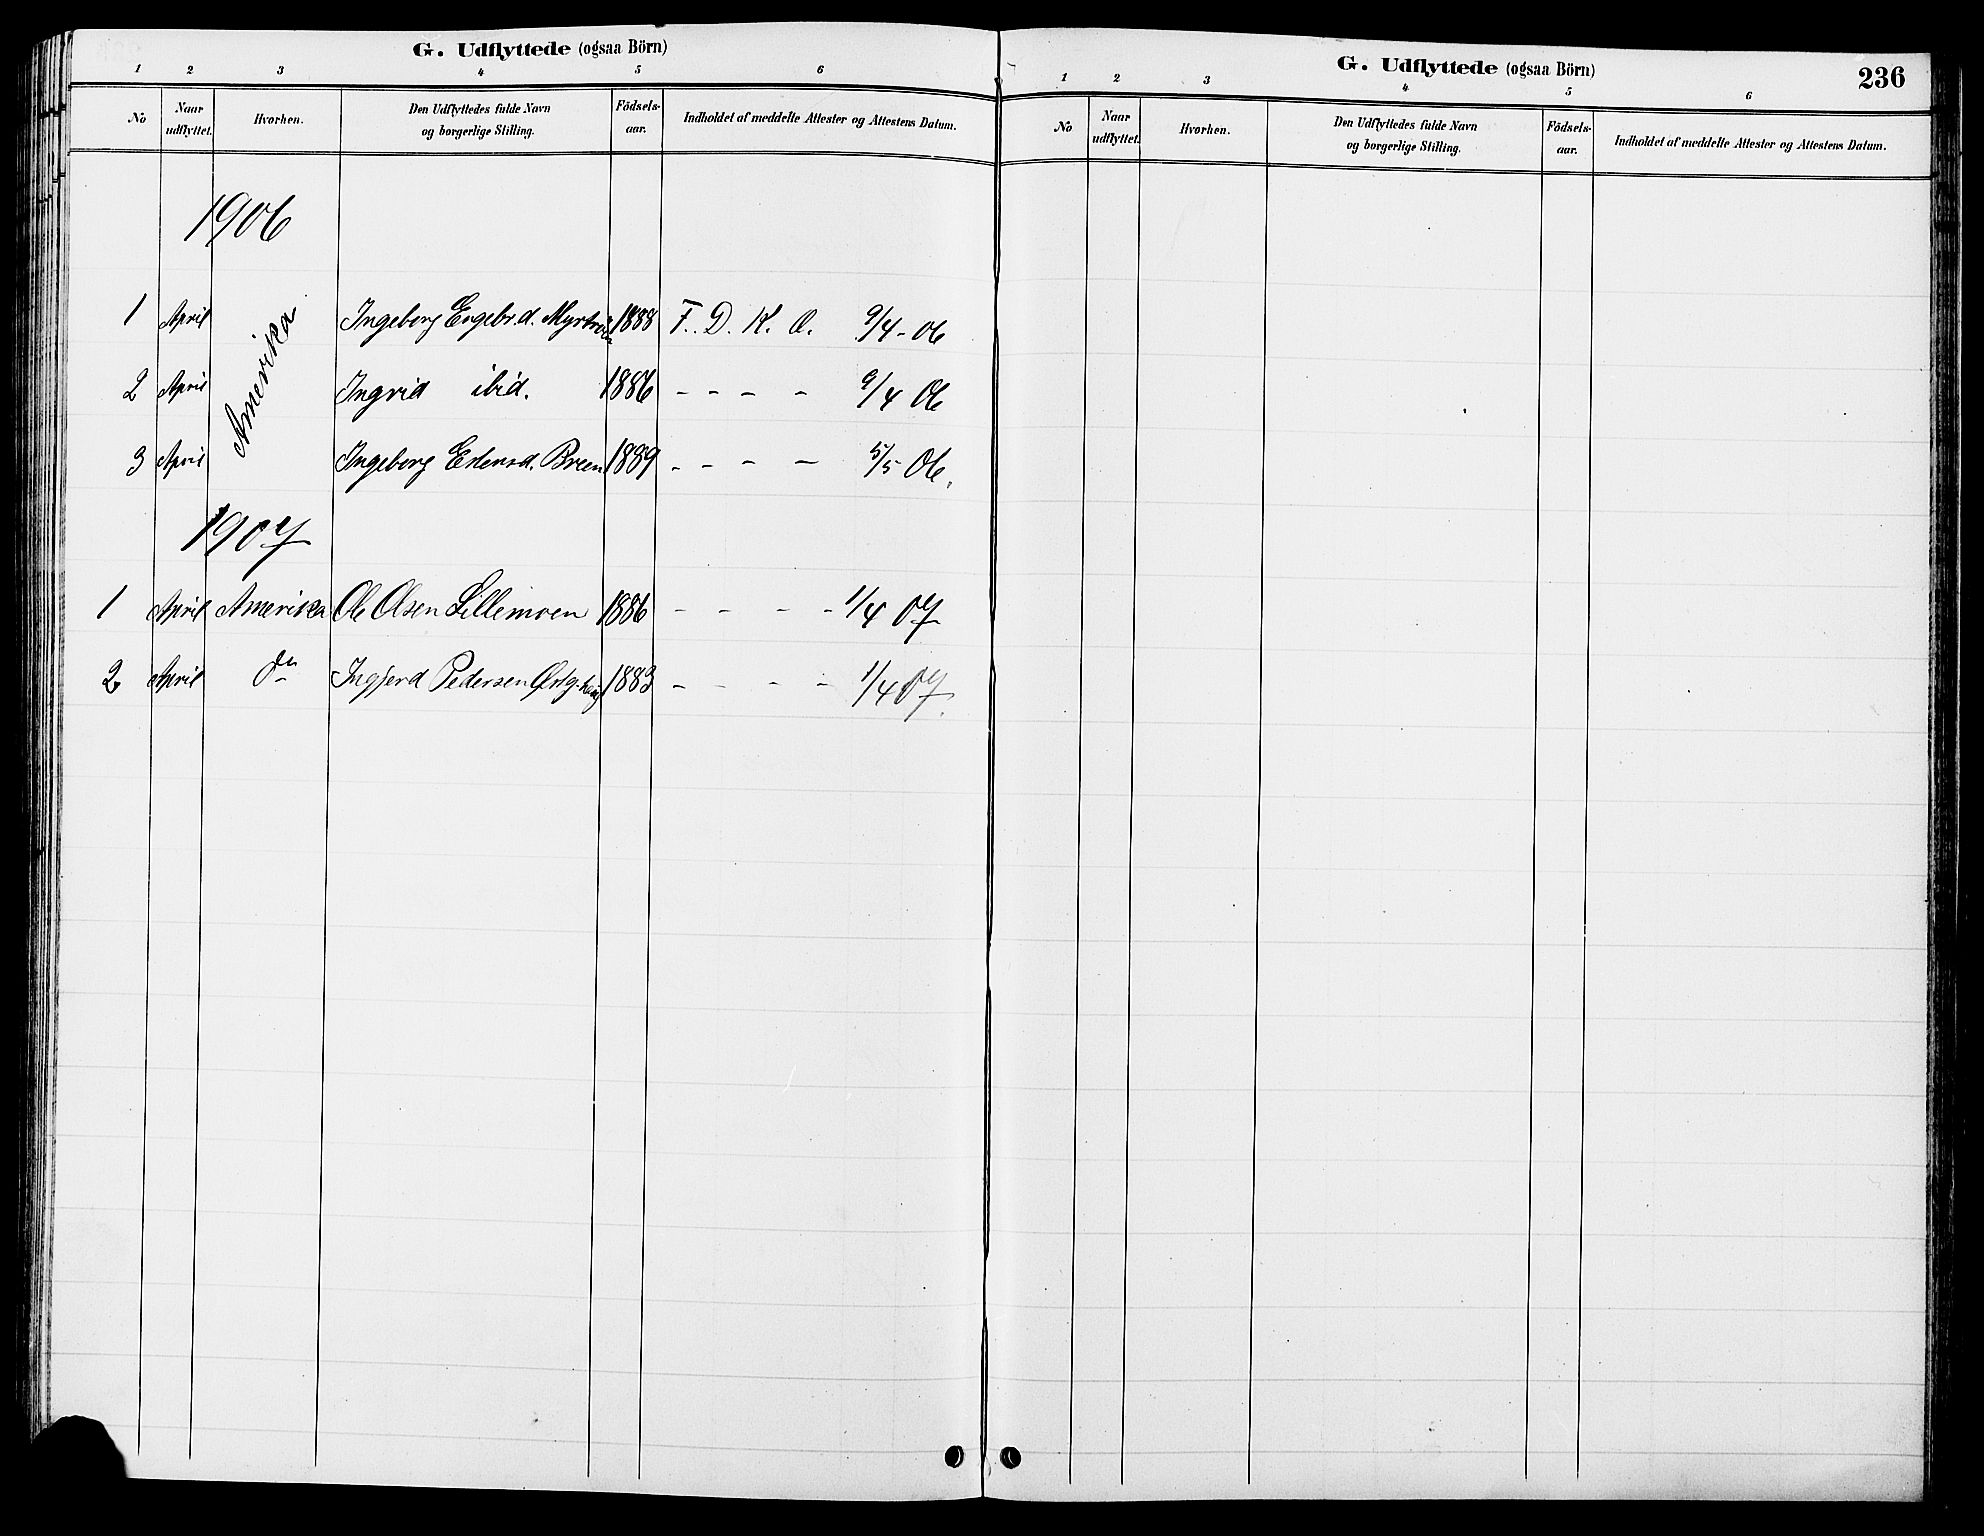 G. Udflyttede (ogsaa Börn)
1 2 3 4 5 6
No Naar udflyttet. Hvorhen. Den Udflyttedes fulde Navn og borgerlige Stilling. Födsels-aar. Indholdet af meddelte Attester og Attestens Datum.
1906
1 April Amerika Ingeborg Engebr.d. 1888 F. D. K. O. 9/4-06
2 April Ingrid ibid. 1886 - - - - 9/4 06
3 April Ingeborg Erlensd. Breen 1889 - - - - 5/5 06.
1907
1 April Amerika Ole Olsen Lillemoen 1886 - - - - 1/4 07
2 April do Ingjerd Pedersen 1883 - - - - 1/4 07.
G. Udflyttede (ogsaa Börn) 236
1 2 3 4 5 6
No Naar udflyttet. Hvorhen. Den Udflyttedes fulde Navn og borgerlige Stilling. Födsels-aar. Indholdet af meddelte Attester og Attestens Datum.